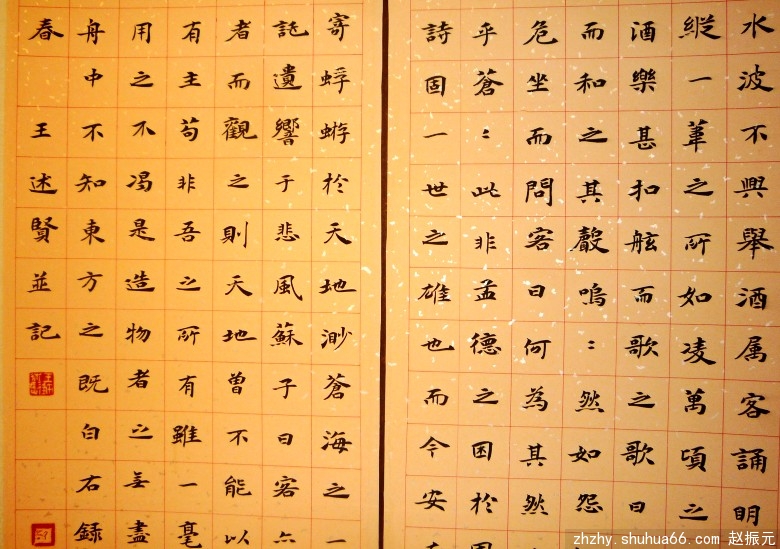 水波不興舉酒属客誦明
縱一葦之所如凌萬頃之
酒樂甚扣舷而歌之歌曰
而和之其聲嗚：然如怨
危坐而問客曰何為其然
乎蒼：此非孟德之困於
詩固一世之雄也而今安
寄蜉蝣於天地渺蒼海之一
託遺響于悲風蘇子曰客亦
者而觀之則天地曾不能以
有主苟非吾之所有雖一毫
用之不渴是造物者之無盡
舟中不知東方之既白右録
春 王述賢並記
zhzhy.shuhua66.com 赵振元